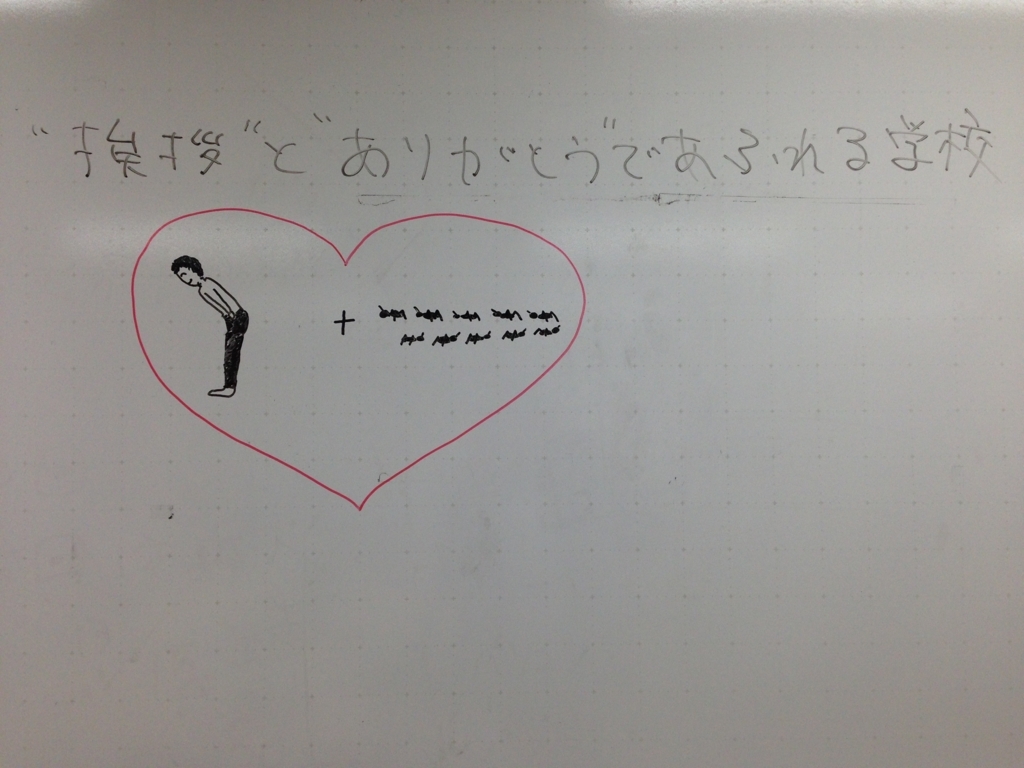 "挨拶"と"ありがとう"であふれる学校
+